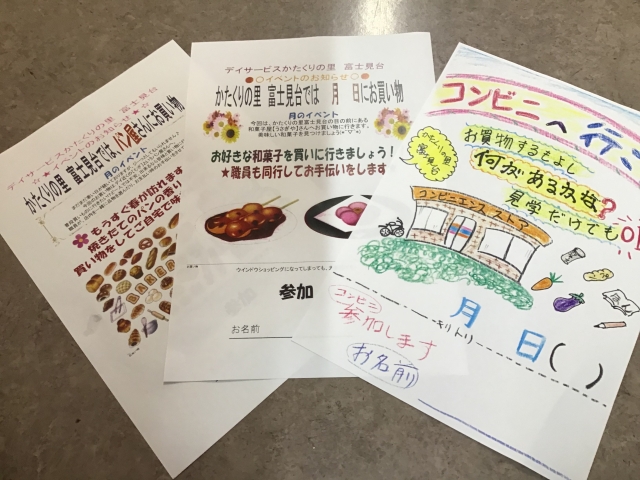 デイサービスかたくりの里 富士見台
★イベントのお知らせ☆
かたくりの里 富士見台では 月
パン屋さんにお買い物
月のイベント
もうすぐ春が訪れます
焼きたてのパンの香り
買い物をしてご自宅で味
デイサービスかたくりの里 富士見台
●○イベントのお知らせ○●
かたくりの里 富士見台では 月 日にお買い物
月のイベント
今回は、かたくりの里富士見台の目の前にある
和菓子屋【うさぎや】さんへお買い物に行きます。
美味しい和菓子を見つけましょう
お好きな和菓子を買いに行きましょう!
★職員も同行してお手伝いをします
ウインドウショッピングになってしまっても、
参加
お名前
コンビニへ行こ
かたくりの里
富士見台
お買物するもよし
何があるかな?
見学だけでもOK
コンビニエンスストアー
キリトリ
月 日( )
コンビニ
参加します
お名前